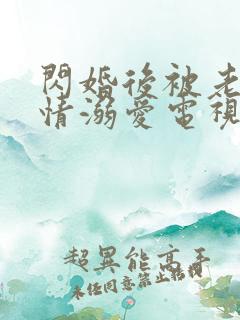 閃婚後被老
情溺愛電視
超異能高手
未任同意禁止轉載